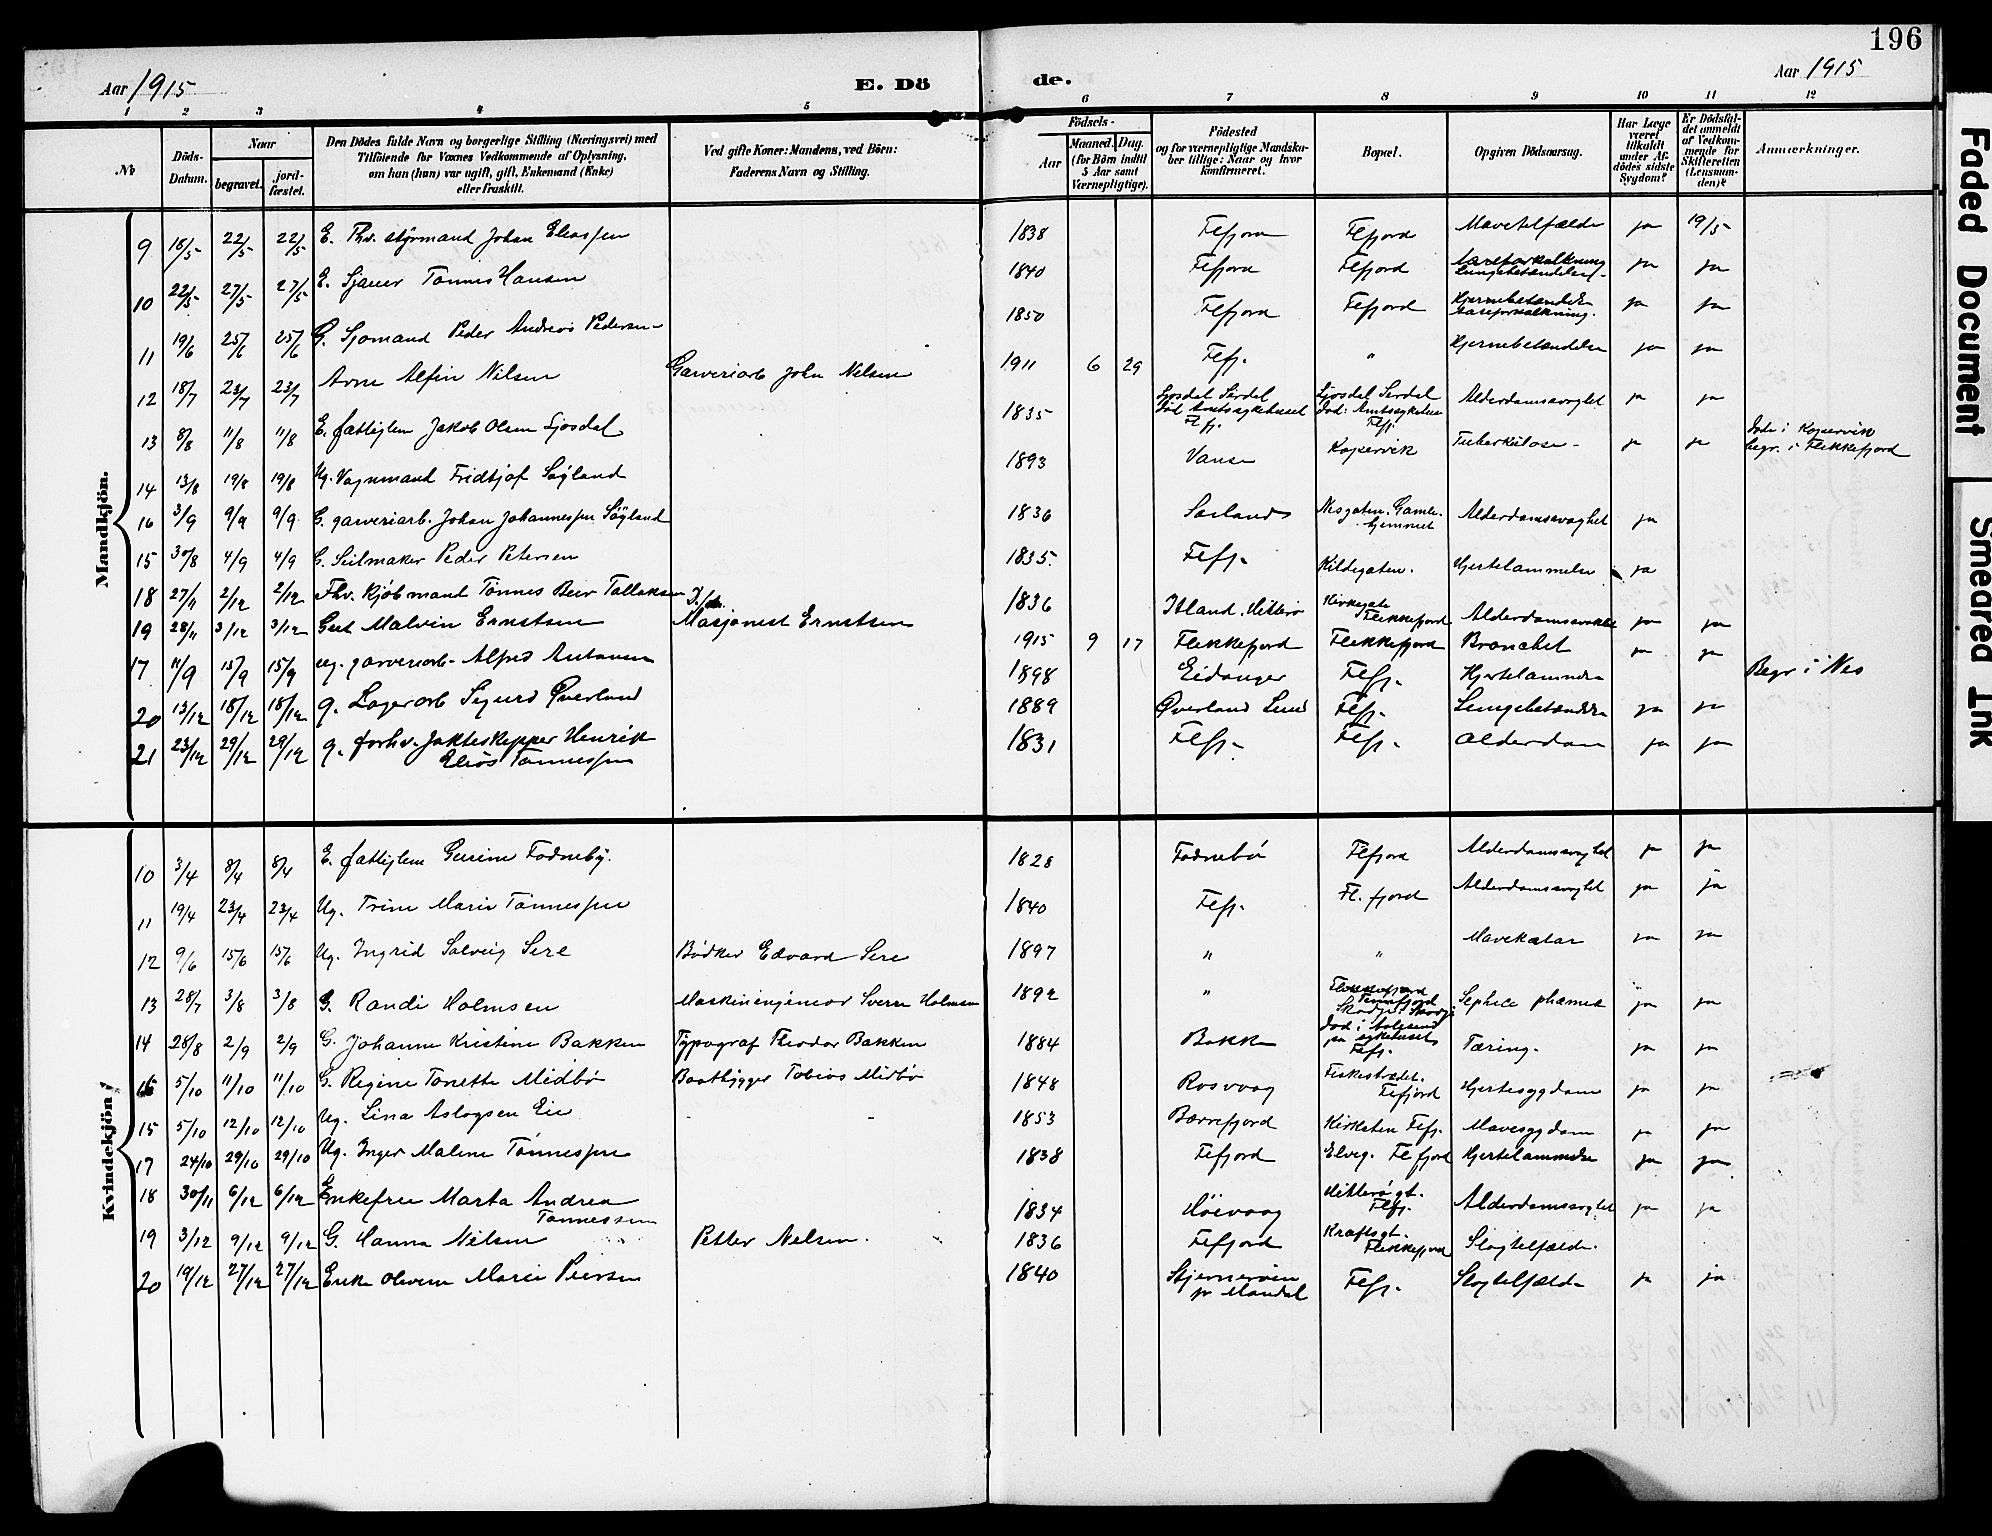 196
Aar 1915
E. Dö
de.
Aar 1915
1 2 3 4 5 6 7 8 9 10 11 12
№ Döds-Datum. Naar begravet. jord-fæstet. Den Dödes fulde Navn og borgerlige Stilling (Næringsvei) med Tilföiende for Voxnes Vedkommende af Oplysning, om han (hun) var ugift, gift, Enkemand (Enke) eller fraskilt. Ved gifte Koner: Mandens, ved Börn: Faderens Navn og Stilling. Födsels- Aar Maaned. Dag. (for Börn indtil 5 Aar samt Værnepligtige). Födested og for værnepligtige Mandskaber tillige: Naar og hvor konfirmeret. Bopæl. Opgiven Dödsaarsag. Har Læge været tilkaldt under Afdödes sidste Sygdom? Er Dödsfaldet anmeldt af Vedkommende for Skifteretten (Lensmanden)? Anmærkninger.
Mandkjön.
9 18/5 22/5 22/5 E. Fhv. styrmand Johan Eliassen 1838 Flfjord Flfjord Mavetilfælde ja 19/5
10 22/5 27/5 27/5 E. Sjauer Tønnes Hansen 1840 Flfjord Flfjord Aareforkalkning Lungebetændelse ja ja
11 19/6 25/6 25/6 G. Sjømand Peder Andreas Pedersen 1850 Flfjord Flfjord Hjernebetændelse Aareforkalkning. ja ja
12 18/7 23/7 23/7 Arne Alfin Nilsen Garveriarb John Nilsen 1911 6 29 Flfj. " Hjernebetændelse ja ja
13 8/8 11/8 11/8 E. fattiglem Jakob Olsen Ljosdal 1835 Ljosdal Sirdal Amtssykehuset Flfj. Ljosdal Sirdal død: Amtssykehuset Flfj. Alderdomssvaghet ja ja
14 13/8 19/8 19/8 Ug. Vognmand Fridtjof Søyland 1893 Vanse Kopervik Tuberkulose - ja ja Døde i Kopervik begr. i Flekkefjord
16 3/9 9/9 9/9 G. garveriarb. Johan Johannessen Søyland 1836 Nesgaten. Gamlehjemmet Alderdomssvaghet ja
15 30/8 4/9 4/9 G. Seilmaker Peder Petersen 1835. Flfj. Kildegaten. Hjertelammelse ja
18 27/11 2/12 2/12 Fhv. Kjøbmand Tønnes Beer Tallaksen 1836 Hitterø Kirkegate Flekkefjord Alderdomssvakhet ja ja
19 28/11 3/12 3/12 Gut Malvin Ernstsen Maskinist Ernstsen 1915 9 17 Flekkefjord Flekkefjord Bronchit ja ja
17 11/9 15/9 15/9 ug. garveriarb. Alfred Antonsen 1898 Eidanger Flfj. Hjertelammelse Begr i Nes
20 13/12 18/12 18/12 g. Lagerarb Sigurd Øverland 1889 Øverland Lund Flfj. Lungebetændelse ja ja
21 23/12 29/12 29/12 g. forhv. Jakteskipper Henrik
Elias Tønnessen 1831 Flfj. Flfj. Alderdom ja ja
Kvindekjön.
10 3/4 8/4 8/4 E. fattiglem Gurine Fodnebø. 1828 Fodnebø Flfjord Alderdomssvaghet ja ja
11 19/4 23/4 23/4 Ug. Trine Marie Tønnessen 1840 Flfj. Fl. fjord Alderdomssvaghet ja ja
12 9/6 15/6 15/6 Ug. Ingrid Solveig Sere Bødker Edvard Sere 1897 " " Mavekatar ja ja
13 28/7 3/8 3/8 G. Randi Holmsen Maskiningeniør Sverre Holmsen 1892 " død i Aalesund på sykehuset ja ja
14 28/8 2/9 2/9 G. Johanne Kristine Bakken Typograf Theodor Bakken 1884 Bakke Flfj. Tæring. ja ja
16 5/10 11/10 11/10 G. Regine Tonette Midbø Baatbygger Tobias Midbø 1848 Rosvaag Fiskestrædet. Flfjord Hjertesygdom ja ja
15 5/10 12/10 12/10 Ug. Lina Aslagsen Eie - 1853 Børrefjord Kirkgaten Flfj. Mavesygdom ja ja
17 24/10 29/10 29/10 Ug. Inger Maline Tønnessen 1838 Flfjord Elveg. Flfjord Hjertelammelse ja ja
18 30/11 6/12 6/12 Enkefru Marta Andrea
Tønnessen 1834 Høievaag Hitterø gt. Flfj. Alderdomssvaghet ja ja
19 3/12 9/12 9/12 G. Hanna Nilsen Petter Nilsen. 1836 Flfjord Kraftsgt. Flekkefjord Slagtilfælde.
20 19/12 27/12 27/12 Enke Olivine Marie Peersen 1840 Stjernerøen pr Mandal Flfj. Slagtilfælde ja ja
Faded Document
Smeared Ink